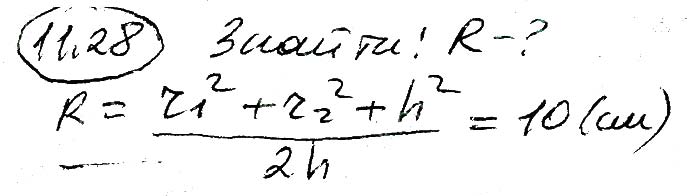 11.28 Знайти! R - ?
R = r₁² + r₂² + h² / 2h = 10 (см)